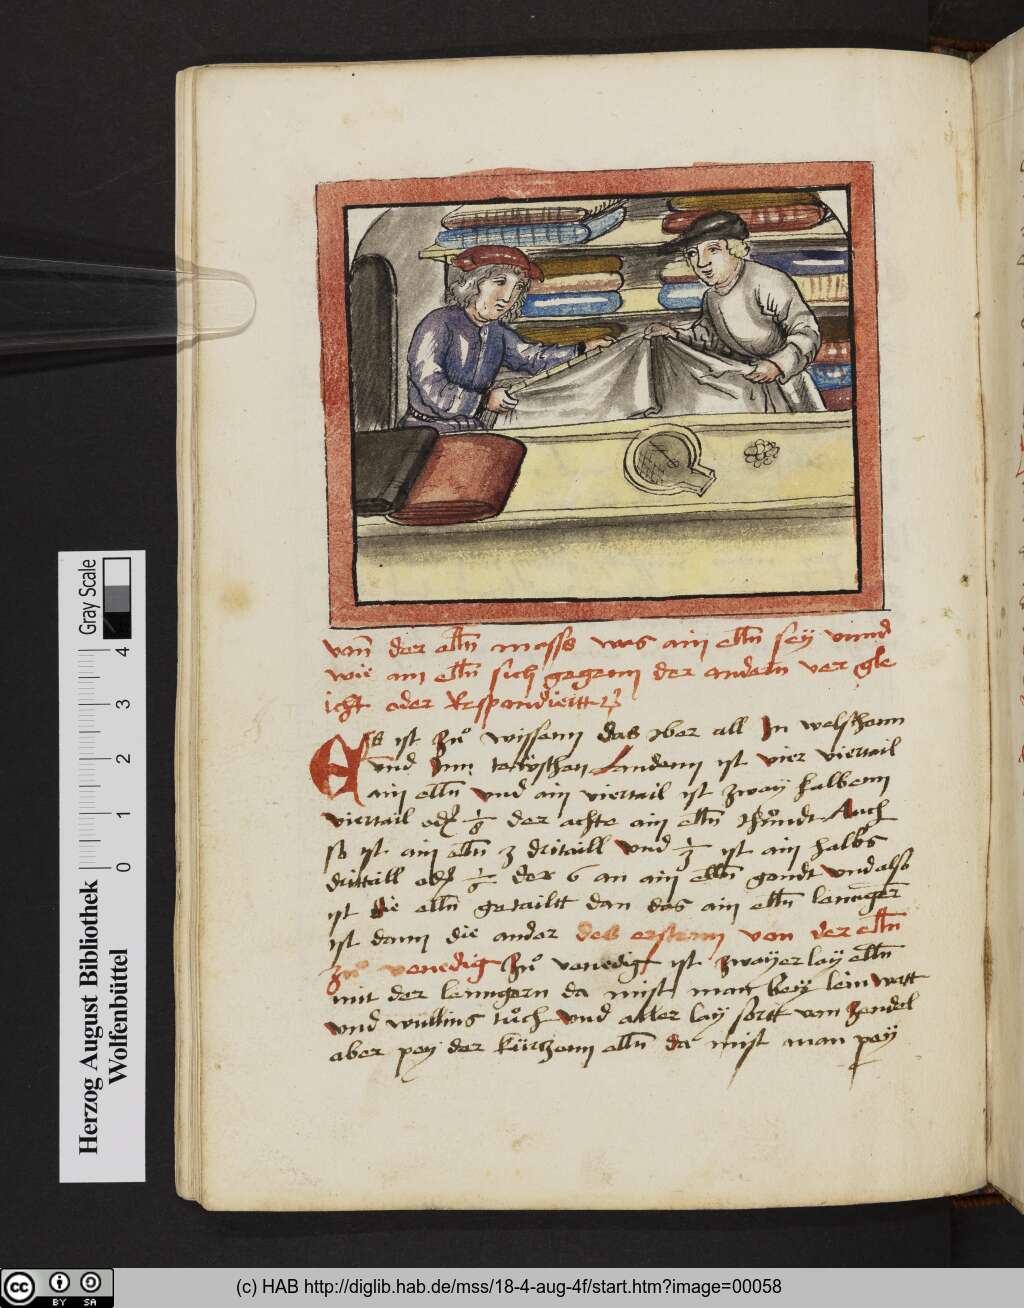 von der elln mesß was ain elln sey vnnd
wie ain elln sich gegenn der andern ver gle
icht oder Respondieitt
Es ist zuͦ wissenn das vber all In welschenn
vnd Inn tewtschen Landenn ist vier viertail
ain elln vnd ain viertail ist zway halbenn
viertail od 1/8 der achte ain elln Auch
so ist ain elln 3 dritaill vnd 1/3 ist ain halbs
drittaill od 1/6 der 6 an ain elln gendt vnd also
ist die elln getailtt dan das ain elln lennger
ist dann die ander des erstenn von der elln
zuͦ venedig Zuͦ venedig ist zwayer lay elln
mit der lenngern da mist man bey leinwatt
vnd wullins tuͦch vnd aller lay sortt von zendel
aber pey der kürtzenn elln da mist man pey
Herzog August Bibliothek
Wolfenbüttel
Gray Scale
0 1 2 3 4
cc BY SA
(c) HAB http://diglib.hab.de/mss/18-4-aug-4f/start.htm?image=00058